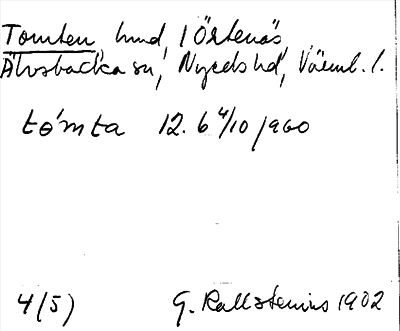 Tomten, hmd, i Örtenäs,
Älvsbacka sn, Nyeds hd, Värml. l.
tómta 12. 6 4/10 1960
4 (5) G. Kallstenius 1902